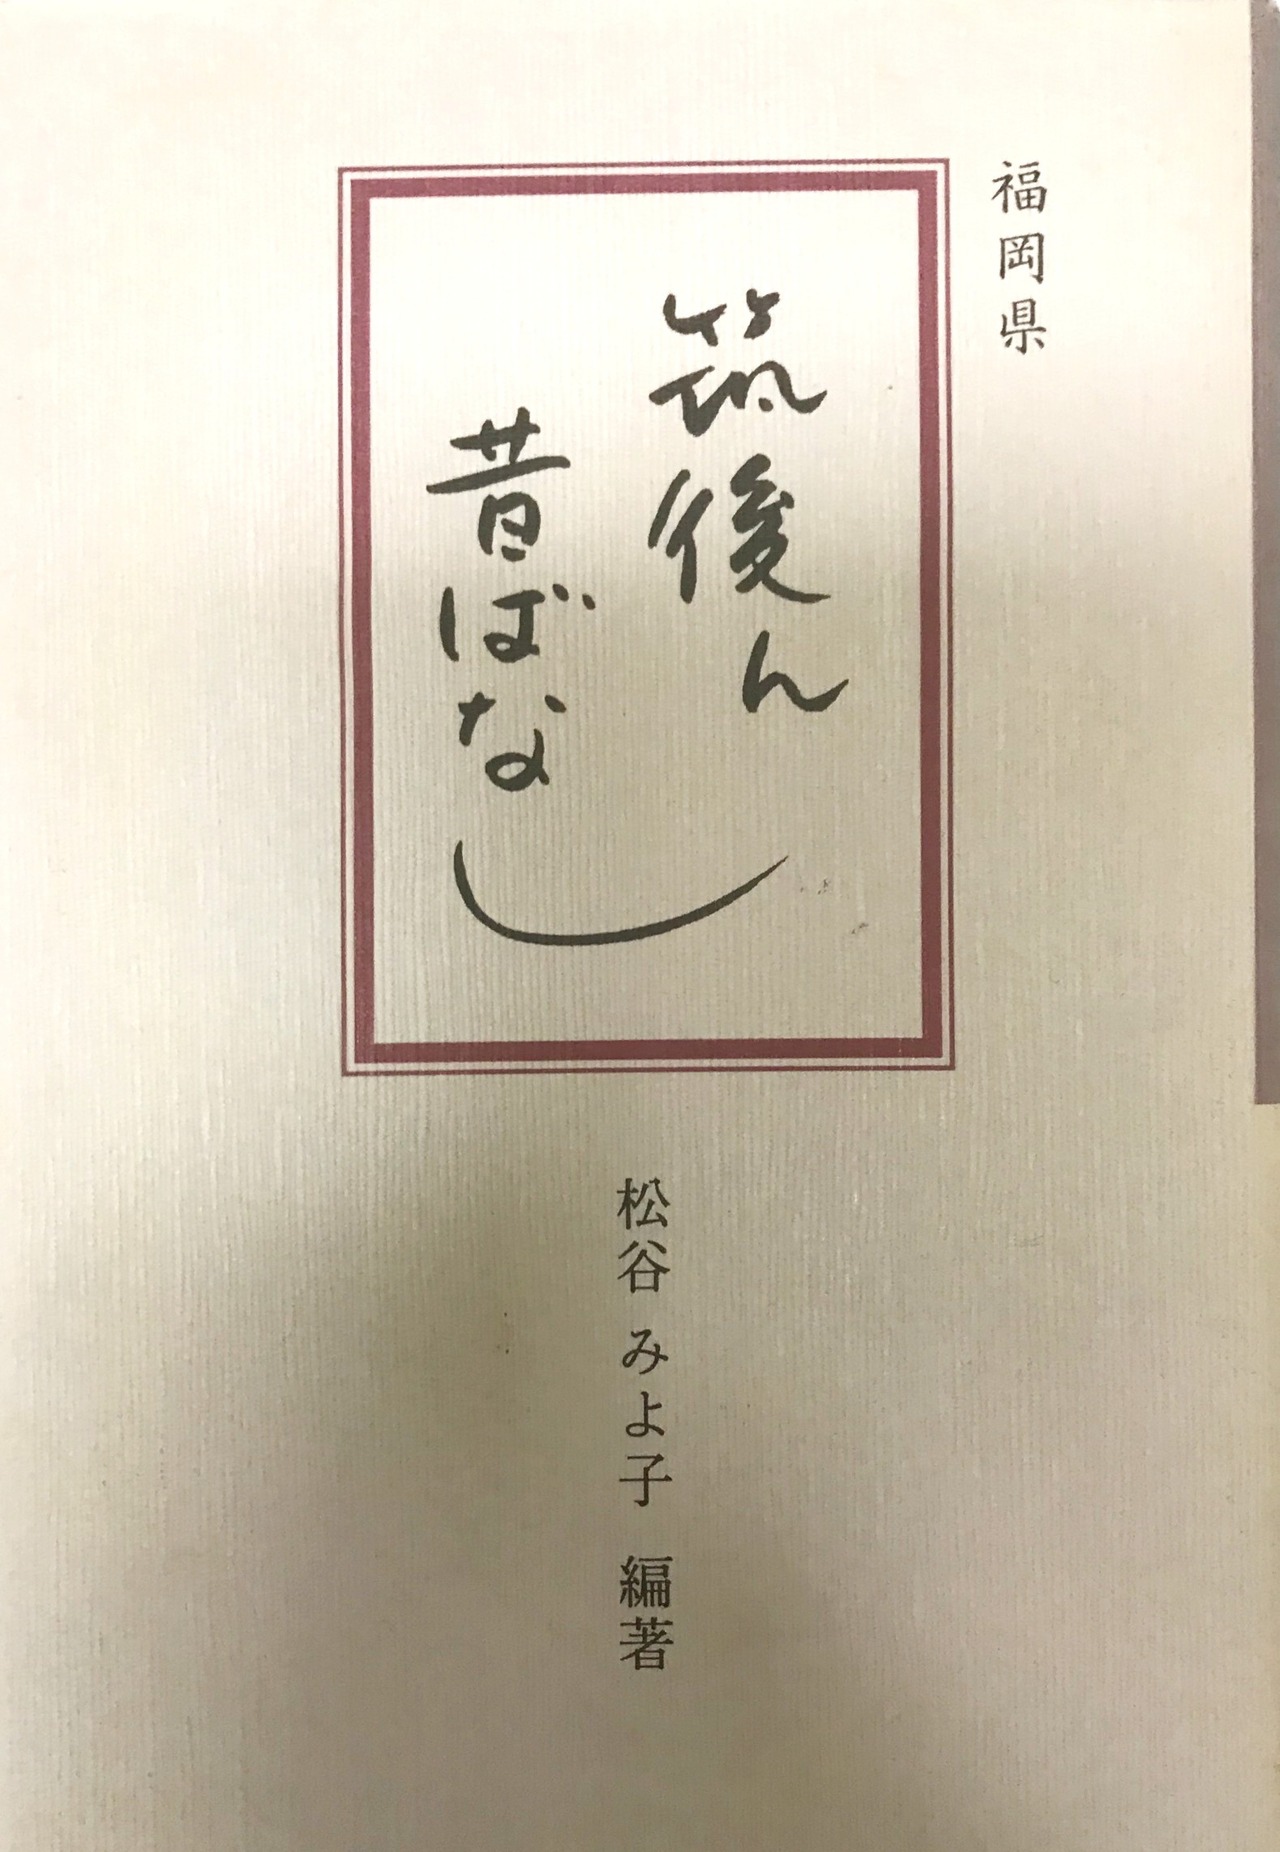 福岡県
筑後ん
昔ばなし
松谷みよ子 編著